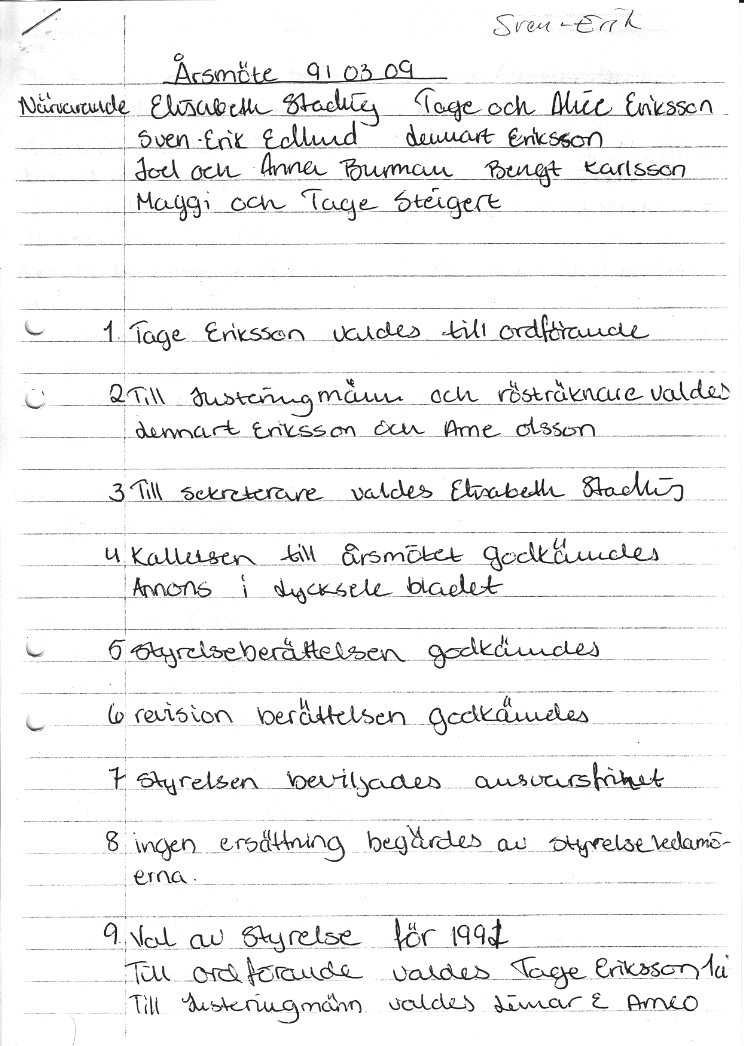 Sven-Erik
Årsmöte 91 03 09
Närvarande Elisabeth Stadig Tage och Alice Eriksson
Sven-Erik Edlund Lennart Eriksson
Joel och Anna Burman Bengt Karlsson
Maggi och Tage Steigert
1. Tage Eriksson valdes till ordförande
2 Till Justeringmänn och rösträknare valdes
Lennart Eriksson och Arne Olsson
3 Till sekreterare valdes Elisabeth Stadig
4 Kallelsen till årsmötet godkändes
Annons i Lycksele bladet
5 Styrelseberättelsen godkändes
6 revision berättelsen godkändes
7 Styrelsen beviljades ansvarsfrihet
8 ingen ersättning begärdes av styrelsevedamö-
erna.
9. Val av Styrelse för 1991
Till ordförande valdes Tage Eriksson 1år
Till Justeringmänn valdes E Arne O